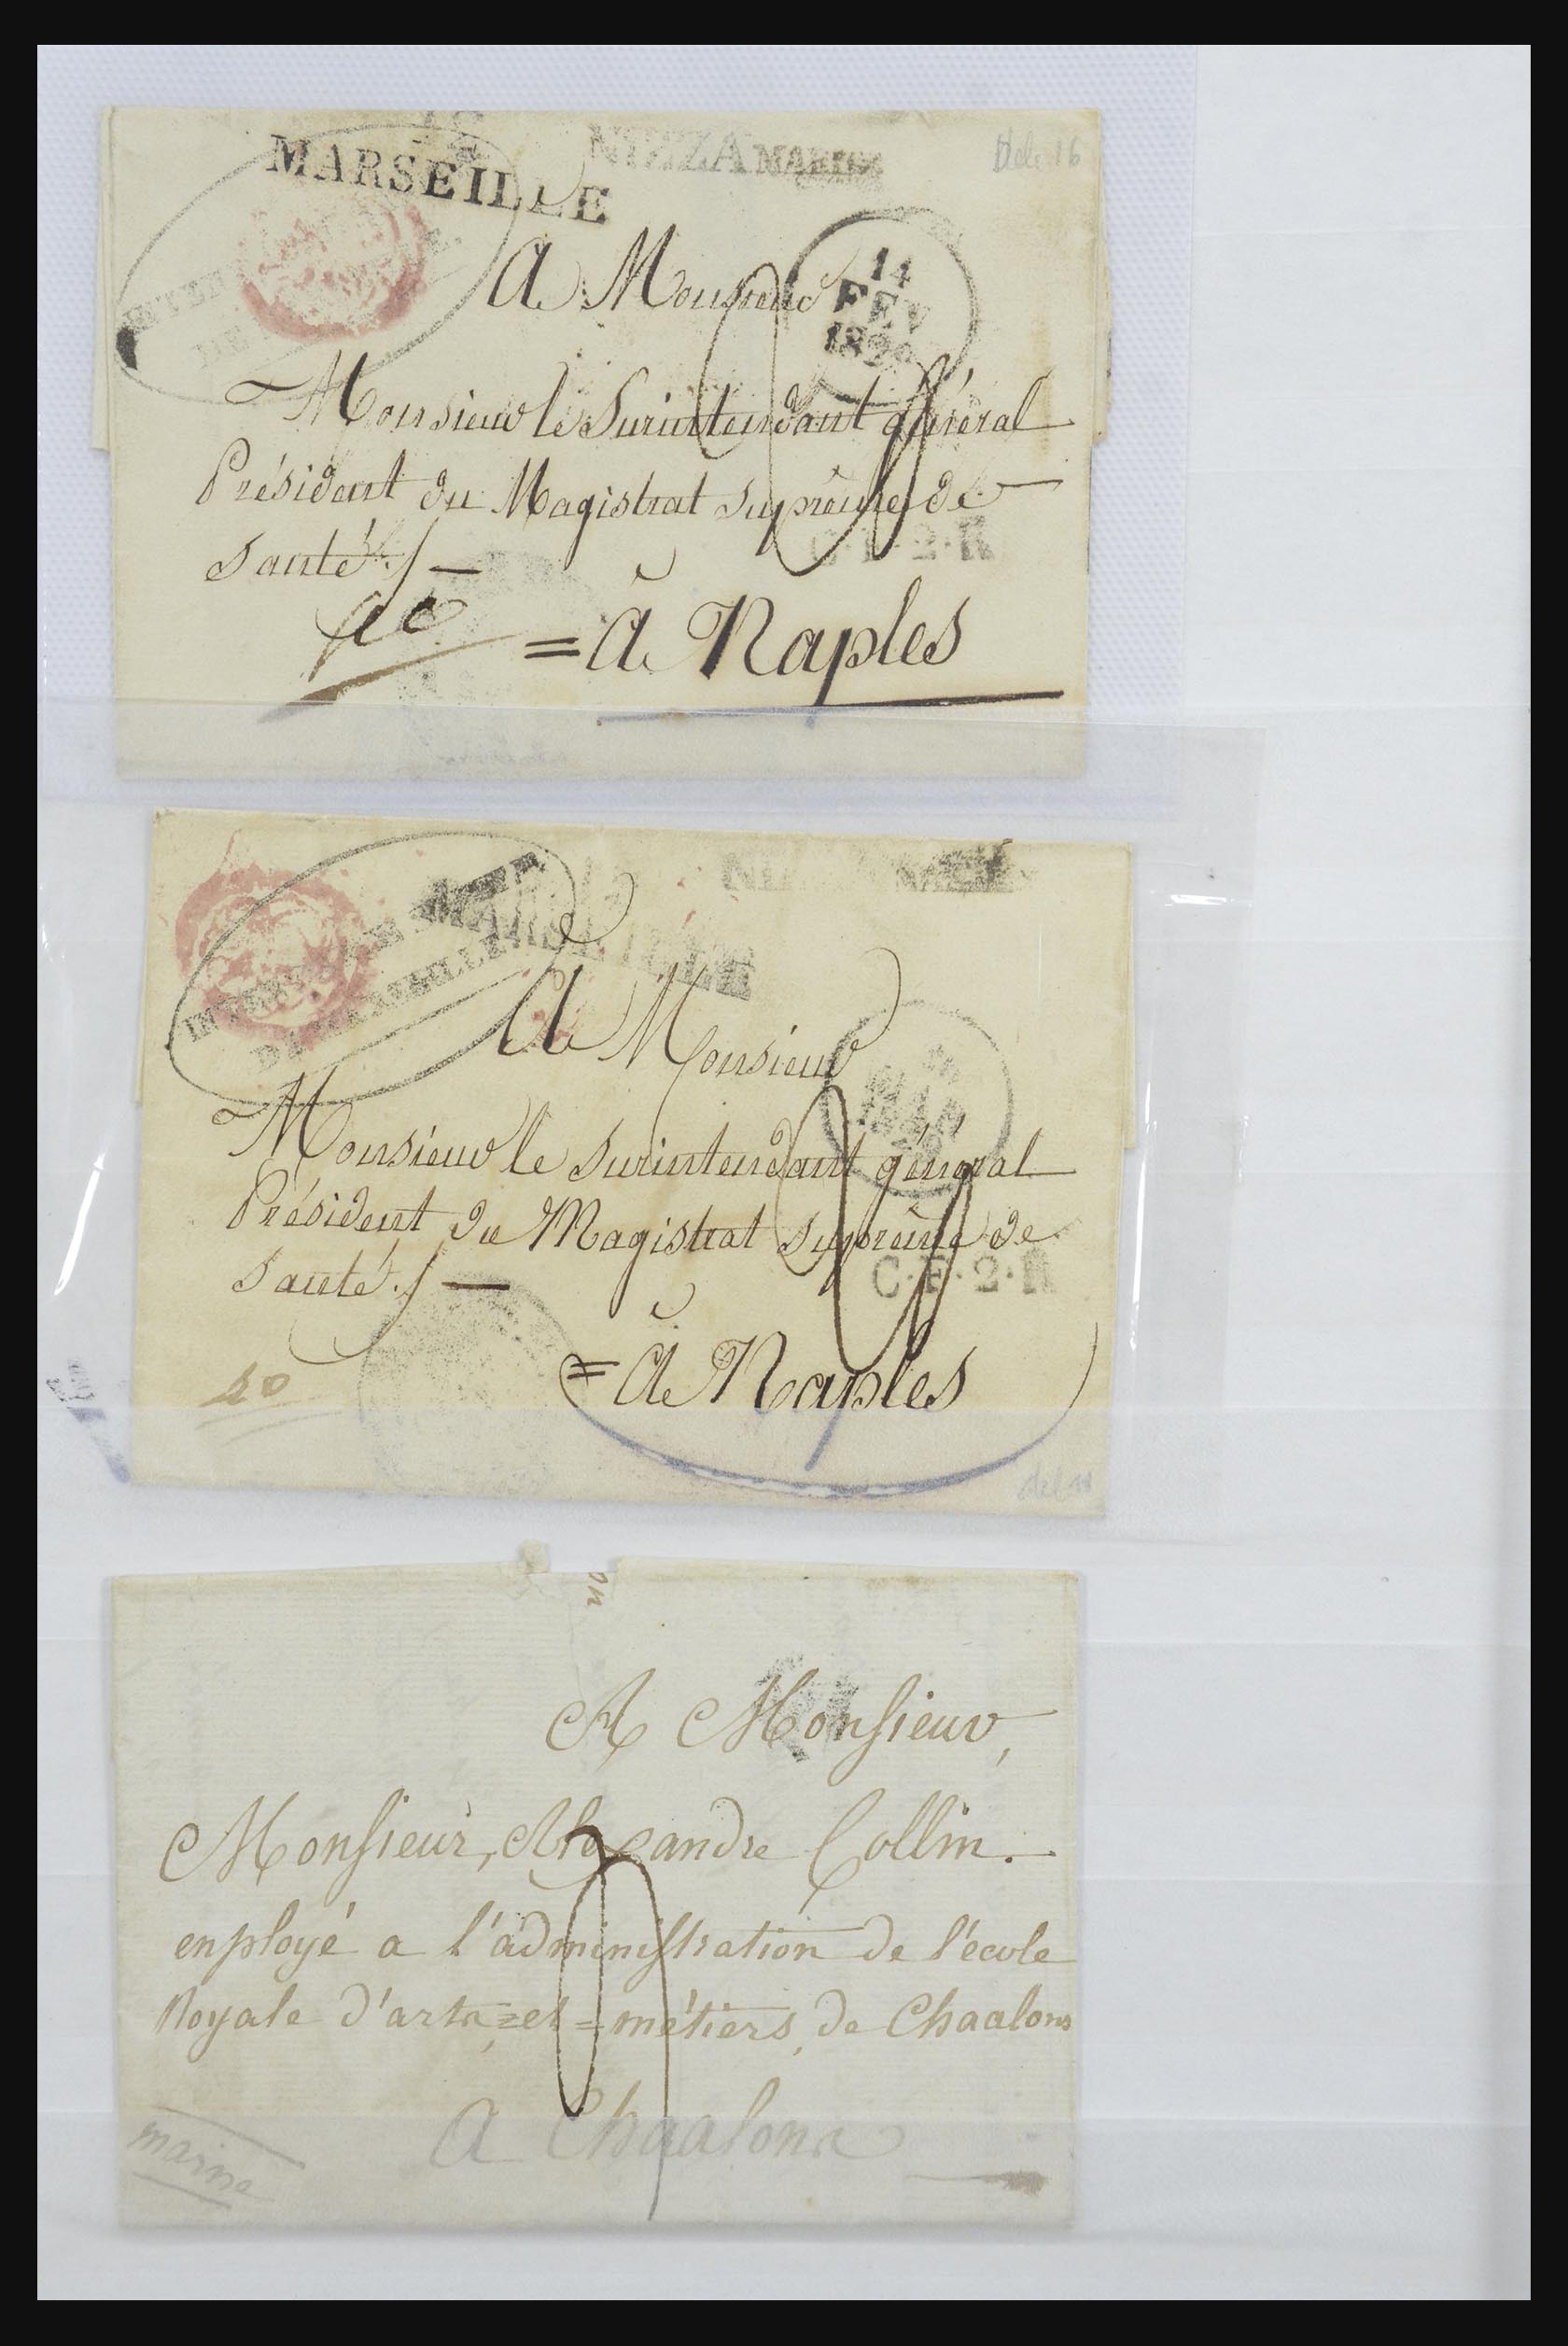 MARSEILLE
NIZZA MARITT
14
FEV
182
A Monsieur
Monsieur le Surintendant général
Président du Magistrat suprême de
Santé ./. —
C·F·2·R
= à Naples
MARSEILLE
INTENDANCE SANITAIRE
DE MARSEILLE
MAR
A Monsieur
Monsieur le Surintendant général
Président du Magistrat suprême de
Santé ./. —
C·F·2·R
= à Naples
on
A Monsieur,
Monsieur, Alexandre Collin.
enployé a l'administration de l'école
Royale d'arts =et= métiers, de Chaalons
A Chaalons
marne